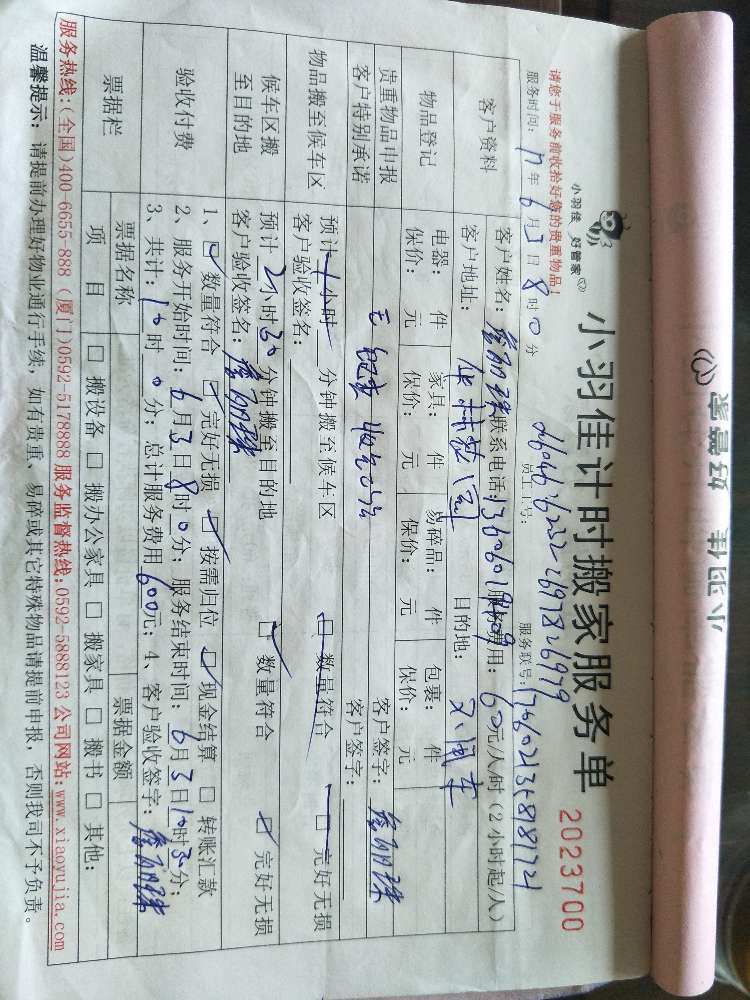 小羽佳 好管家
小羽佳 好管家
小羽佳计时搬家服务单
2023700
请您于服务前收拾好您的贵重物品!
员工工号:
服务联号:
服务时间: 17年6月3日8时0分
客户资料
客户姓名: 詹丽珠 联系电话: 服务费用: 60元/人/时(2小时起/人)
客户地址: 目的地:
物品登记
电器: 件 家具: 件 易碎品: 件 包裹: 件
保价: 元 保价: 元 保价: 元 保价: 元
贵重物品申报 客户签字: 詹丽珠
客户特别承诺 无 客户签字:
物品搬至候车区
预计 小时 分钟搬至候车区 数量符合 完好无损
客户验收签名:
候车区搬至目的地
预计2小时30分钟搬至目的地 数量符合 完好无损
客户验收签名: 詹丽珠
验收付费
1、数量符合 完好无损 按需归位 现金结算 转账汇款
2、服务开始时间: 6月3日8时0分; 服务结束时间: 6月3日10时30分;
3、共计: 10时0分; 总计服务费用600元; 4、客户验收签字: 詹丽珠
票据栏
票据名称 票据金额
项目 搬设备 搬办公家具 搬家具 搬书 其他:
服务热线:(全国)400-6655-888 (厦门)0592-5178888 服务监督热线:0592-5888123 公司网站:www.xiaoyujia.com
温馨提示: 请提前办理好物业通行手续, 如有贵重、易碎或其它特殊物品请提前申报, 否则我司不予负责。